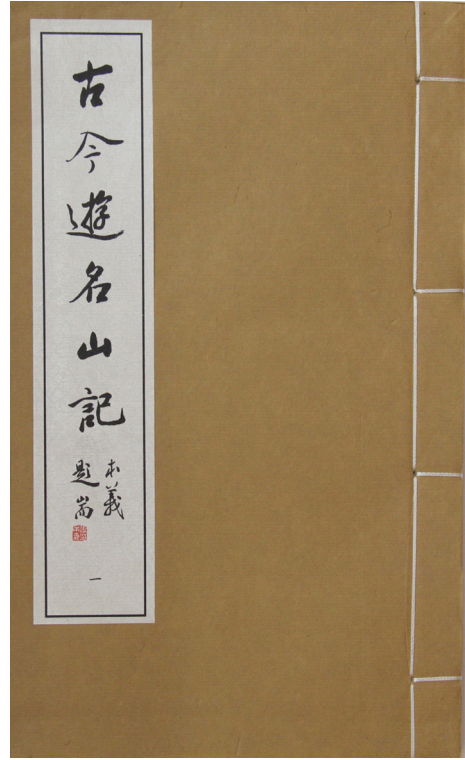 古今遊名山記
本義
題耑
一